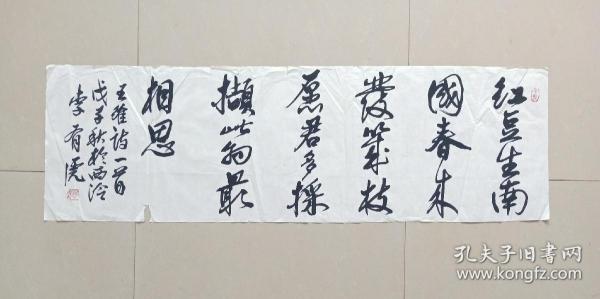 红豆生南
國春来
發幾枝
愿君多採
擷此物最
相思
王維詩一首
戊子秋於西泠
李有
孔夫子旧书网
www.kongfz.com